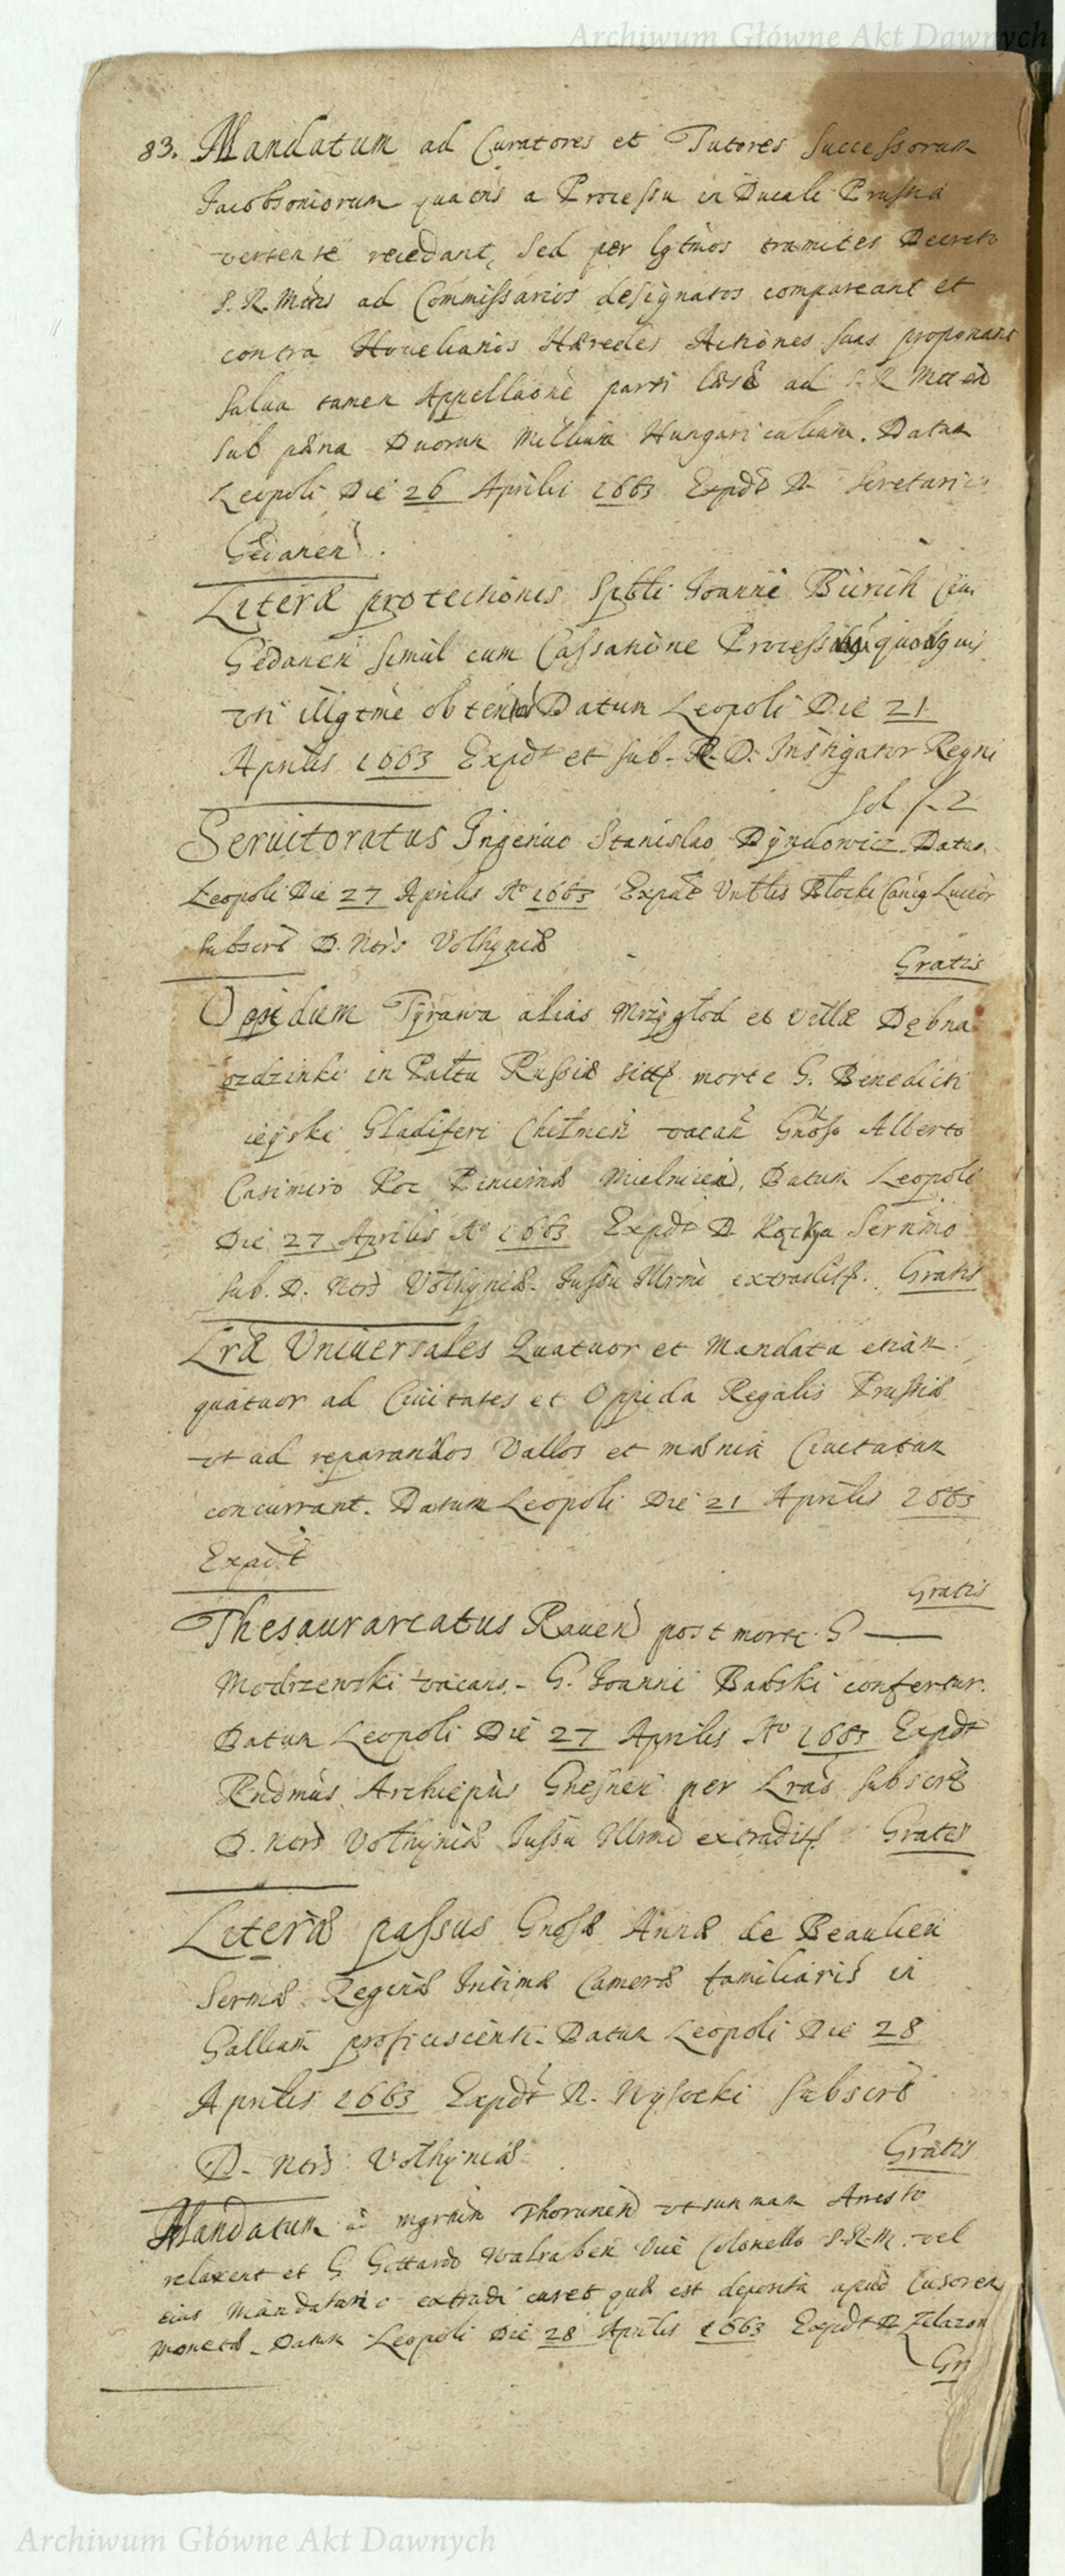 Archiwum Główne Akt Dawnych
83. Mandatum ad Curatores et Tutores Successorum
Jacobsoniorum quatns a Processu in Ducali Prussia
vertente recedant, sed per lgtmos tramites Decreto
S. R. Mttis ad Commissarios designatos compareant et
contra Hovelianos Hæredes Actiones suas proponant
salva tamen Appellaone parti læsæ ad S. R. Mttem
sub pæna Duorum Millium Hungaricalium. Datum
Leopoli Die 26 Aprilis 1663 Expdt D. Secretari
Gedanen.
Literæ protectionis Sptli Joanni Bürich Civi
Gedanen simul cum Cassatione Processus quousquis
illgtme obtent Datum Leopoli Die 21
Aprilis 1663 Expdt et sub. R. D. Instigator Regni
Sol f. 2
Servitoratus Ingenuo Stanislao Dyndowicz Datum
Leopoli Die 27 Aprilis Ao 1663 Expdt Vntlis Błocki Canćg Luceor
subscrt D. Nors Volhyniæ
Gratis
Oppidum Tyrawa alias Mrzygłod et villæ Dębna
ozdzinki in Paltu Russiæ sitt. morte G. Benedicti
ieyski Gladiferi Chełmen vacan Gnoso Alberto
Casimiro Koc Pincernæ Mielnicen, Datum Leopoli
Die 27 Aprilis Ao 1663 Expdt D. Sermmo
sub. D. Nors Volhyniæ. Jussu Illrmi extradit. Gratis
Lræ Universales Quatuor et Mandata etiam
quatuor ad Civitates et Oppida Regalis Prussiæ
vt ad reparandos Vallos et mænia Civitatum
concurrant. Datum Leopoli Die 21 Aprilis 1663
Expdt
Gratis
Thesaurariatus Raven post morte G —
Modrzewski vacans. G. Joanni Babski confertur.
Datum Leopoli Die 27 Aprilis Ao 1663 Expdt
Rndmus Archiepus Gnesnen per Lras subscrt
D. Nors Volhyniæ Jussu Illrmi extradit. Gratis
Literæ passus Gnosæ Annæ de Beaulieu
Sermæ Reginæ Intimæ Cameræ familiaris in
Galliam proficiscenti. Datum Leopoli Die 28
Aprilis 1663 Expdt R. Wysocki subscrt
D. Nors Volhyniæ
Gratis
Mandatum ad mgrtum Thorunen vt summam Aresto
relaxent et G. Gottardo Walraben Vice Colonello S. R. M. vel
eius Mandatario extradi curet quæ est deposita apud Cusorem
Monetæ. Datum Leopoli Die 28 Aprilis 1663 Expdt D Zelazon
Gr
Archiwum Główne Akt Dawnych